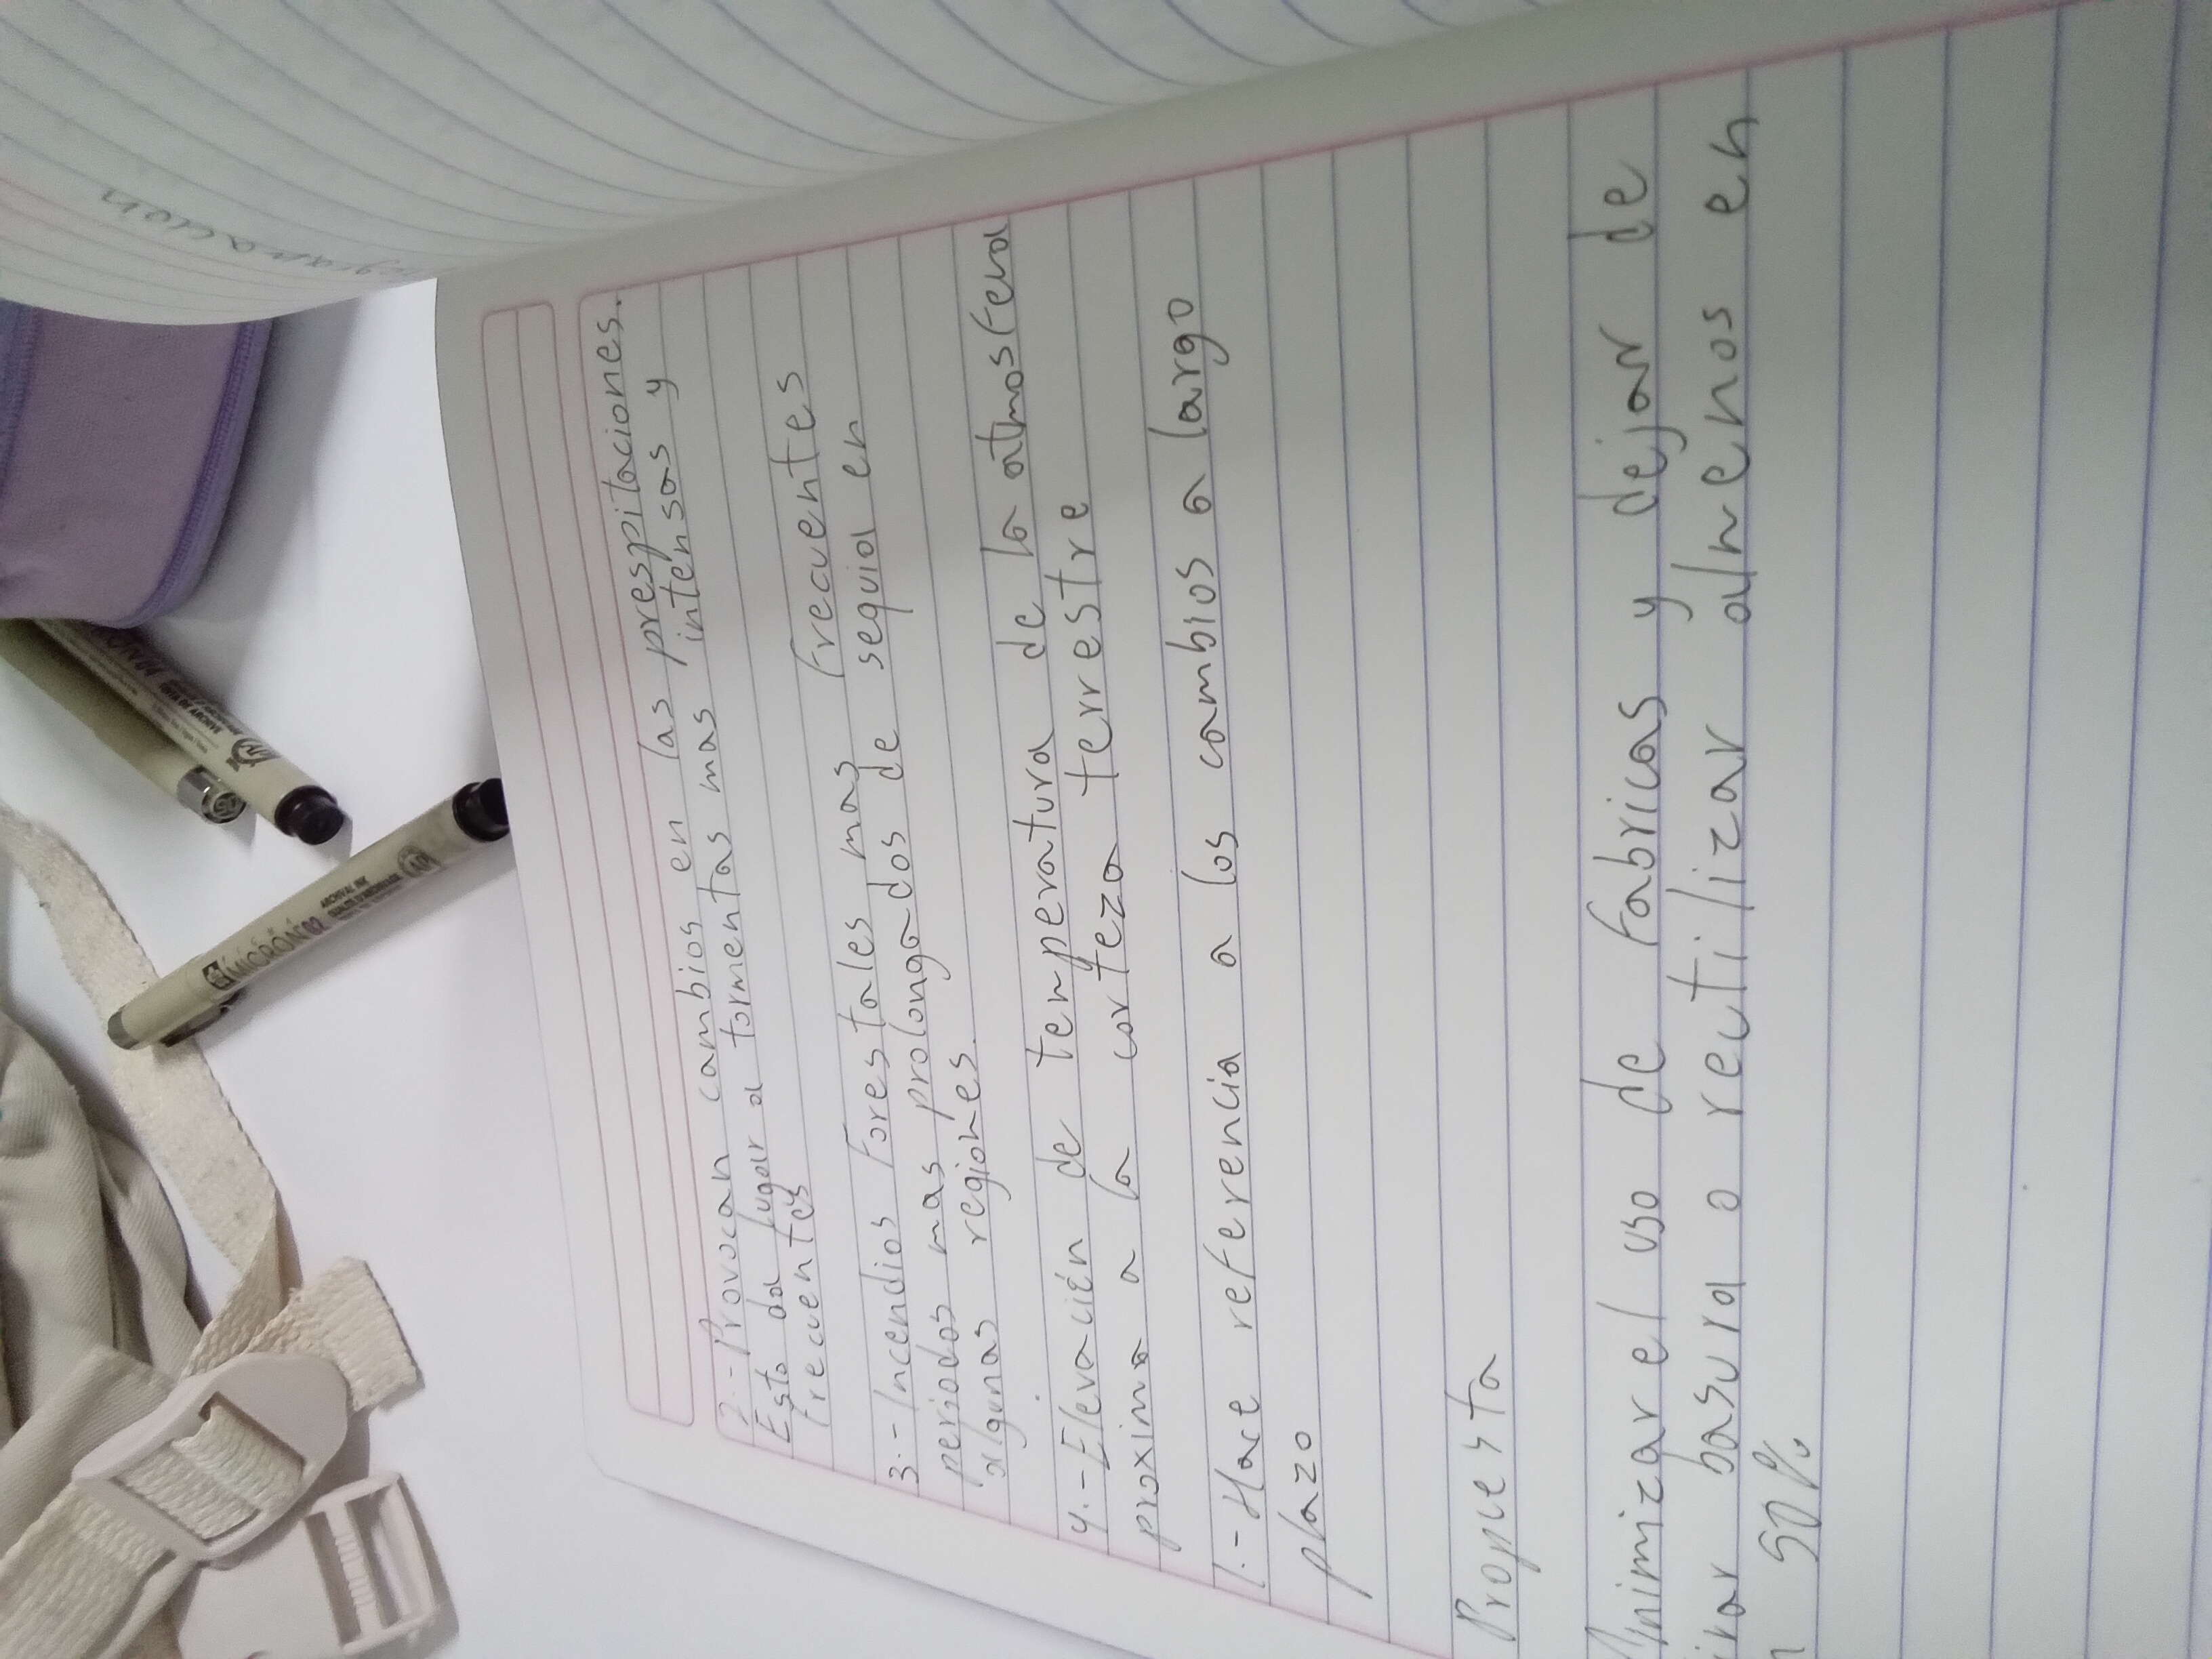 2.-Provocan cambios en las prespitaciones.
Esto da lugar a tormentas mas intensas y
frecuentes
3.-Incendios Forestales mas frecuentes
periodos mas prolongados de sequia en
algunas regiones.
4.-Elevación de temperatura de la atmosfera
proxima a la corteza terrestre
1.-Hace referencia a los cambios a largo
plazo
Propuesta
Minimizar el uso de fabricas y dejar de
irar basura o reutilizar almenos en
n 50%
MICRON 02
ARCHIVAL INK
05